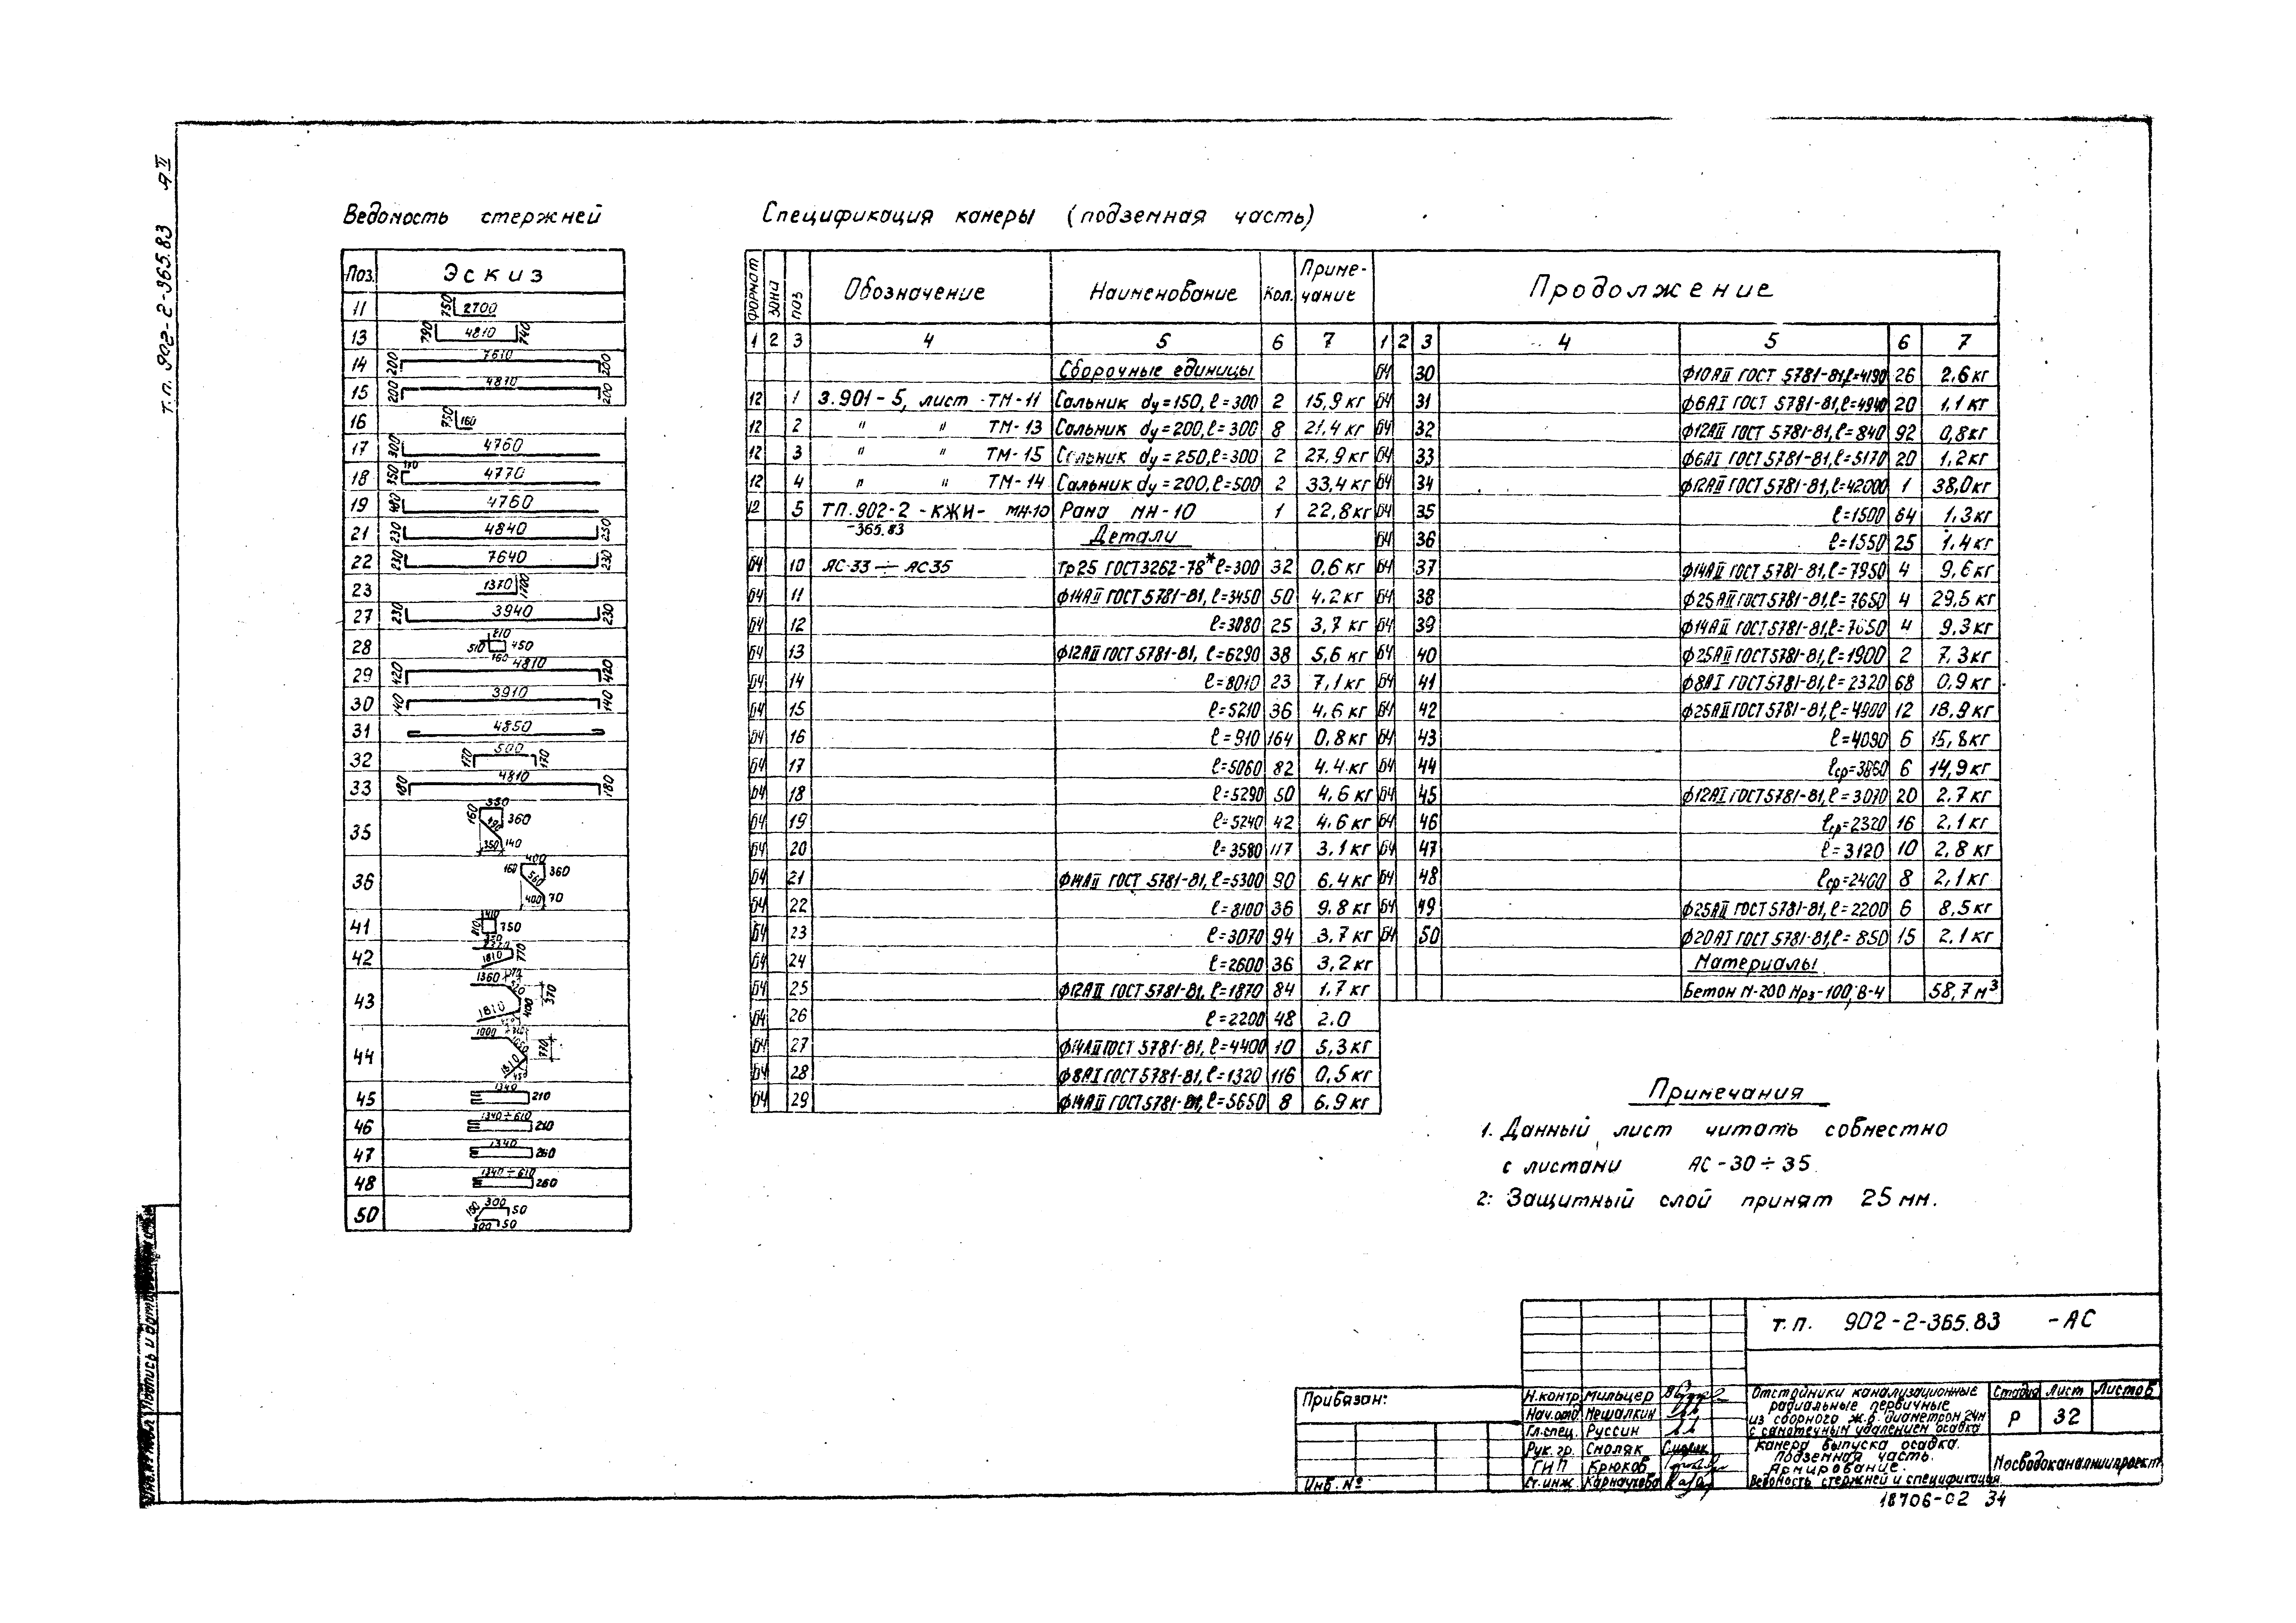 т.п. 902-2-365.83 АII
Ведомость стержней
Поз. Эскиз
11 750 2700
13 790 4810 740
14 200 7610 200
15 200 4810 200
16 750 160
17 300 4760
18 350 4770
19 480 4760
21 230 4840 230
22 230 7640 230
23 1370 1700
27 230 3940 230
28 210 510 450 160
29 420 4810 420
30 140 3910 140
31 4850
32 170 500 170
33 180 4810 180
35 350 160 360 490 350 140
36 400 160 360 560 400 70
41 410 810 750 350
42 2320 1810 770
43 1360 1810 400 370
44 1000 1810 770
45 1340 210
46 1340÷610 210
47 1340 260
48 1340÷610 260
50 150 300 50 300 50
Спецификация камеры (подземная часть)
формат зона поз Обозначение Наименование Кол. Примечание Продолжение
1 2 3 4 5 6 7 1 2 3 4 5 6 7
Сборочные единицы
12 1 3.901-5, лист ТМ-11 Сальник dу=150, ℓ=300 2 15,9 кг
12 2 " " ТМ-13 Сальник dу=200, ℓ=300 8 21,4 кг
12 3 " " ТМ-15 Сальник dу=250, ℓ=300 2 27,9 кг
12 4 " " ТМ-14 Сальник dу=200, ℓ=500 2 33,4 кг
12 5 ТП.902-2 -КЖИ- МН-10 Рама МН-10 1 22,8 кг
-365.83
Детали
б4 10 АС-33 ÷ АС35 Тр25 ГОСТ3262-78* ℓ=300 32 0,6 кг
б4 11 ф14АII ГОСТ 5781-81, ℓ=3450 50 4.2 кг
б4 12 ℓ=3080 25 3,7 кг
б4 13 ф12АII ГОСТ 5781-81, ℓ=6290 38 5,6 кг
б4 14 ℓ=8010 23 7,1 кг
б4 15 ℓ=5210 36 4.6 кг
б4 16 ℓ=910 164 0,8 кг
б4 17 ℓ=5060 82 4.4 кг
б4 18 ℓ=5290 50 4,6 кг
б4 19 ℓ=5240 42 4.6 кг
б4 20 ℓ=3580 117 3,1 кг
б4 21 ф14АII ГОСТ 5781-81, ℓ=5300 90 6.4 кг
б4 22 ℓ=8100 36 9.8 кг
б4 23 ℓ=3070 94 3.7 кг
б4 24 ℓ=2600 36 3,2 кг
б4 25 ф12АII ГОСТ 5781-81, ℓ=1870 84 1.7 кг
б4 26 ℓ=2200 48 2.0
б4 27 ф14АII ГОСТ 5781-81, ℓ=4400 10 5,3 кг
б4 28 ф8АI ГОСТ 5781-81, ℓ=1320 116 0,5 кг
б4 29 ф14АII ГОСТ 5781-81, ℓ=5650 8 6.9 кг
б4 30 ф10АII ГОСТ 5781-81, ℓ=4190 26 2.6 кг
б4 31 ф6АI ГОСТ 5781-81, ℓ=4940 20 1,1 кг
б4 32 ф12АII ГОСТ 5781-81, ℓ=840 92 0,8 кг
б4 33 ф6АI ГОСТ 5781-81, ℓ=5170 20 1,2 кг
б4 34 ф12АII ГОСТ 5781-81, ℓ=42000 1 38,0 кг
б4 35 ℓ=1500 64 1.3 кг
б4 36 ℓ=1550 25 1.4 кг
б4 37 ф14АII ГОСТ 5781-81, ℓ=7950 4 9.6 кг
б4 38 ф25АII ГОСТ 5781-81, ℓ=7650 4 29,5 кг
б4 39 ф14АII ГОСТ 5781-81, ℓ=7650 4 9.3 кг
б4 40 ф25АII ГОСТ 5781-81, ℓ=1900 2 7,3 кг
б4 41 ф8АI ГОСТ 5781-81, ℓ=2320 68 0.9 кг
б4 42 ф25АII ГОСТ 5781-81, ℓ=4900 12 18,9 кг
б4 43 ℓ=4090 6 15,8 кг
б4 44 ℓср=3860 6 14,9 кг
б4 45 ф12АI ГОСТ 5781-81, ℓ=3070 20 2.7 кг
б4 46 ℓср=2320 16 2,1 кг
б4 47 ℓ=3120 10 2,8 кг
б4 48 ℓср=2460 8 2,1 кг
б4 49 ф25АII ГОСТ 5781-81, ℓ=2200 6 8,5 кг
б4 50 ф20АI ГОСТ 5781-81, ℓ=850 15 2.1 кг
Материалы
Бетон М-200 Мрз-100, В-4 58,7 м³
Примечания
1. Данный лист читать совместно
с листами АС-30÷35.
2. Защитный слой принят 25 мм.
т.п. 902-2-365.83 -АС
Привязан:
Инв. №
Н.контр Мильцер
Нач.отд Мешалкин
Гл.спец. Руссин
Рук. гр. Смоляк
ГИП Брюков
Ст.инж. Карнаухова
Отстойники канализационные
радиальные первичные
из сборного ж.б. диаметром 24м
с самотечным удалением осадка
Стадия Лист Листов
Р 32
Камера выпуска осадка.
Подземная часть.
Армирование.
Ведомость стержней и спецификация
Мосводоканалниипроект
18706-02 34
Подпись и дата